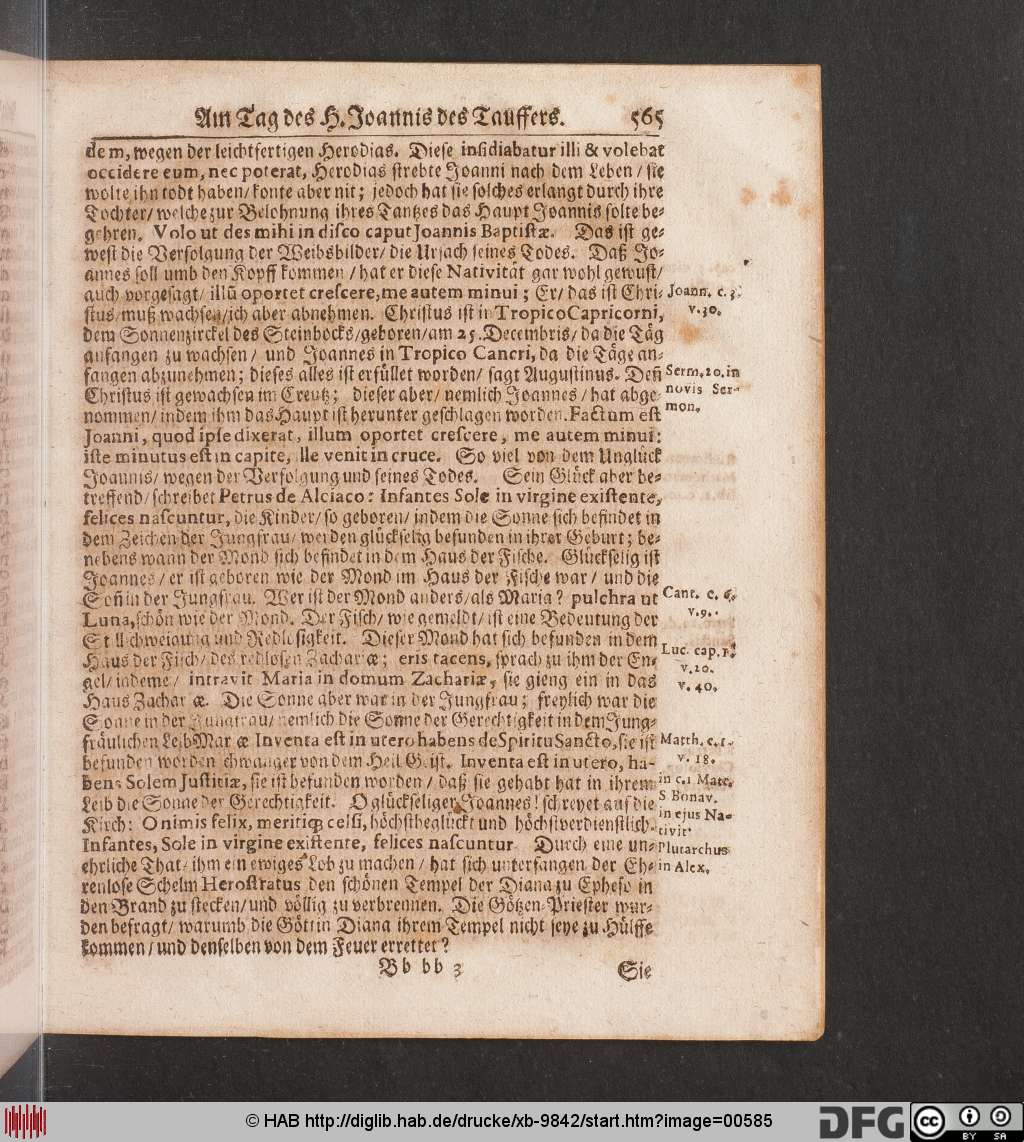 Am Tag des H. Joannis des Tauffers. 565
dem, wegen der leichtfertigen Herodias. Diese insidiabatur illi & volebat
occidere eum, nec poterat, Herodias strebte Joanni nach dem Leben / sie
wolte ihn todt haben / konte aber nit; jedoch hat sie solches erlangt durch ihre
Tochter / welche zur Belohnung ihres Tantzes das Haupt Joannis solte be-
gehren. Volo ut des mihi in disco caput Joannis Baptistæ. Das ist ge-
west die Verfolgung der Weibsbilder / die Ursach seines Todes. Daß Jo-
annes soll umb den Kopff kommen / hat er diese Nativität gar wohl gewust /
auch vorgesagt / illũ oportet crescere, me autem minui; Er / das ist Chri-
Joann. c. 3.
v. 30.
stus / muß wachsen / ich aber abnehmen. Christus ist in Tropico Capricorni,
dem Sonnenzirckel des Steinbocks / geboren / am 25. Decembris / da die Täg
anfangen zu wachsen / und Joannes in Tropico Cancri, da die Täge an-
fangen abzunehmen; dieses alles ist erfüllet worden / sagt Augustinus. Deñ
Serm. 20. in
novis Ser-
mon.
Christus ist gewachsen im Creutz; dieser aber / nemlich Joannes / hat abge-
nommen / indem ihm das Haupt ist herunter geschlagen worden. Factum est
Joanni, quod ipse dixerat, illum oportet crescere, me autem minui:
iste minutus est in capite, lle venit in cruce. So viel von dem Unglück
Joannis / wegen der Verfolgung und seines Todes. Sein Glück aber be-
treffend / schreibet Petrus de Alciaco: Infantes Sole in virgine existente,
felices nascuntur, die Kinder / so geboren / indem die Sonne sich befindet in
dem Zeichen der Jungfrau / werden glückselig befunden in ihrer Geburt; be-
nebens wann der Mond sich befindet in dem Haus der Fische. Glückselig ist
Joannes / er ist geboren wie der Mond im Haus der Fische war / und die
Soñ in der Jungfrau. Wer ist der Mond anders / als Maria? pulchra ut
Cant. c. 6.
v. 9.
Luna, schön wie der Mond. Der Fisch / wie gemeldt / ist eine Bedeutung der
Stillschweigung und Redlosigkeit. Dieser Mond hat sich befunden in dem
Haus der Fisch / des redlosen Zachariæ; eris tacens, sprach zu ihm der En-
Luc. cap. 1.
v. 20.
v. 40.
gel / indeme / intravit Maria in domum Zachariæ, sie gieng ein in das
Haus Zachar æ. Die Sonne aber war in der Jungfrau; freylich war die
Sonne in der Jungfrau / nemlich die Sonne der Gerechtigkeit in dem Jung-
fräulichen Leib Mar æ Inventa est in utero habens de Spiritu Sancto, sie ist
Matth. c. 1.
v. 18.
befunden worden schwanger von dem Heil. Geist. Inventa est in utero, ha-
bens Solem Justitiæ, sie ist befunden worden / daß sie gehabt hat in ihrem
in c. 1 Matt.
S Bonav.
in ejus Na-
tivit
Leib die Sonne der Gerechtigkeit. O glückseliger Joannes! schreyet auf die
Kirch: O nimis felix, meritiq; celsi, höchstbeglückt und höchstverdienstlich.
Infantes, Sole in virgine existente, felices nascuntur. Durch eine un-
Plutarchus
in Alex.
ehrliche That / ihm ein ewiges Lob zu machen / hat sich unterfangen der Eh-
renlose Schelm Herostratus den schönen Tempel der Diana zu Epheso in
den Brand zu stecken / und völlig zu verbrennen. Die Götzen-Priester wur-
den befragt / warumb die Göttin Diana ihrem Tempel nicht seye zu Hülffe
kommen / und denselben von dem Feuer errettet?
Bb bb 3 Sie
© HAB http://diglib.hab.de/drucke/xb-9842/start.htm?image=00585
DFG cc BY SA